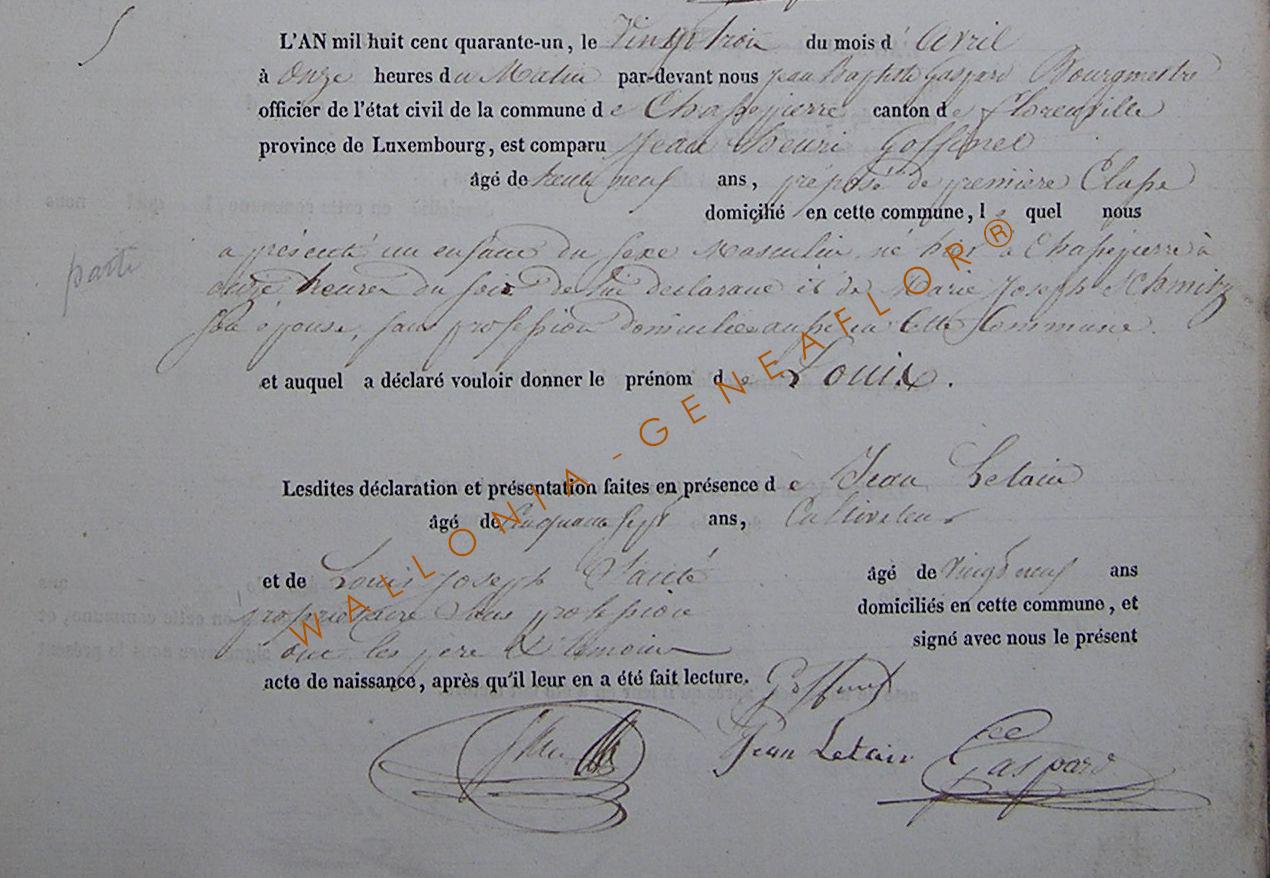 L'AN mil huit cent quarante-un, le Vingt trois du mois d' Avril
à Onze heures du Matin par-devant nous Jean Baptiste Gaspard Bourgmestre
officier de l'état civil de la commune de Chassepierre canton de Florenville
province de Luxembourg, est comparu Jean Henri Goffinet
âgé de trente neuf ans, préposé de première Classe
domicilié en cette commune, lequel nous
a présenté un enfant du sexe Masculin, né hier à Chassepierre à
onze heures du soir de lui déclarant et de Marie Joseph Schmitz
son épouse, sans profession domiciliée aussi en cette Commune.
et auquel a déclaré vouloir donner le prénom de Louis.
Lesdites déclaration et présentation faites en présence de Jean Letain
âgé de Cinquante Sept ans, Cultivateur
et de Louis Joseph âgé de Vingt neuf ans
propriétaire sans profession domiciliés en cette commune, et
les père & témoins signé avec nous le présent
acte de naissance, après qu'il leur en a été fait lecture. Goffinet
Jean Letain Gaspard
WALLONIA-GENEAFLOR®